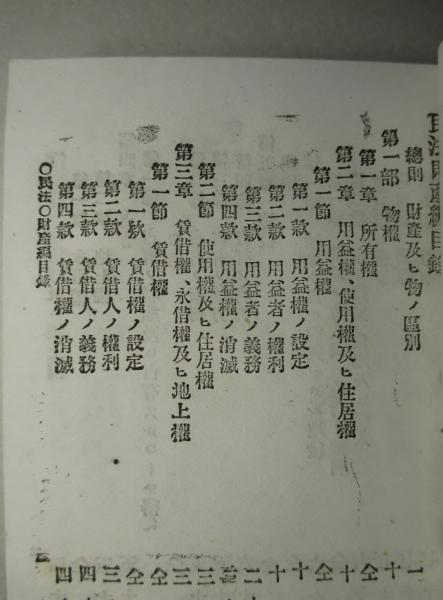 民法財産編目錄
總則 財產及ヒ物ノ區別
第一部 物權
第一章 所有權
第二章 用益權、使用權及ヒ住居權
第一節 用益權
第一款 用益權ノ設定
第二款 用益者ノ權利
第三款 用益者ノ義務
第四款 用益權ノ消滅
第二節 使用權及ヒ住居權
第三章 賃借權、永借權及ヒ地上權
第一節 賃借權
第一款 賃借權ノ設定
第二款 賃借人ノ權利
第三款 賃借人ノ義務
第四款 賃借權ノ消滅
○民法○財產編目錄